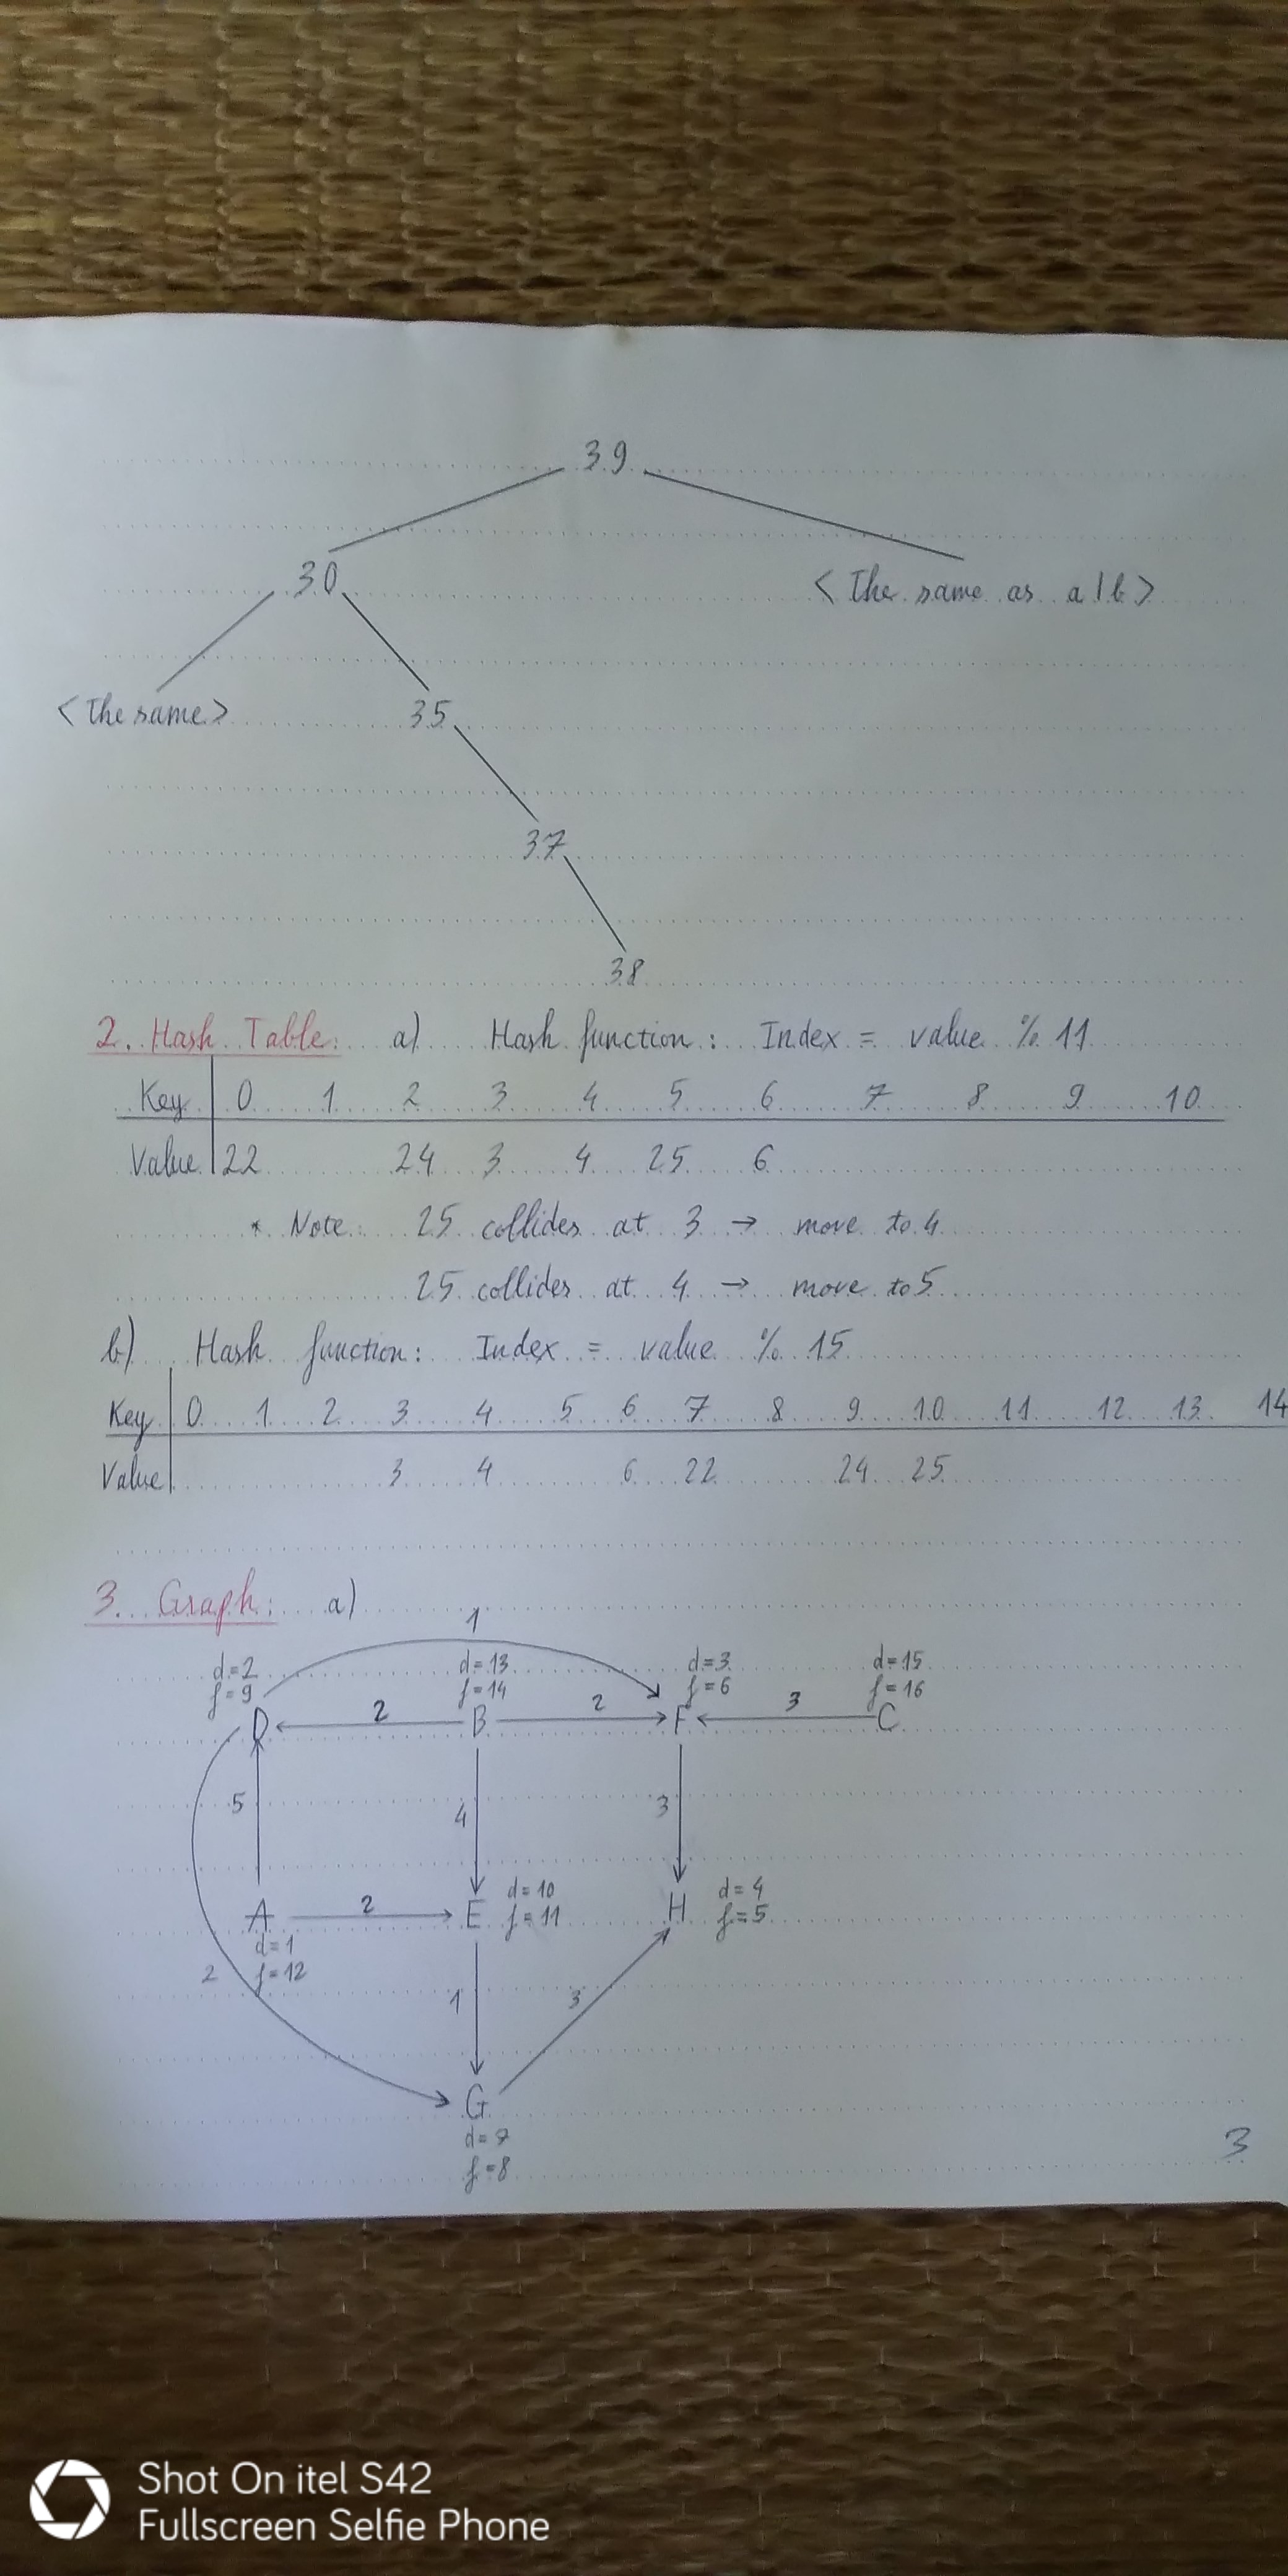 39
30 < The same as a/b >
< The same > 35
37
38
2. Hash Table: a) Hash function: Index = value % 11
Key 0 1 2 3 4 5 6 7 8 9 10
Value 22 24 3 4 25 6
* Note: 25 collides at 3 → move to 4
25 collides at 4 → move to 5
b) Hash function: Index = value % 15
Key 0 1 2 3 4 5 6 7 8 9 10 11 12 13 14
Value 3 4 6 22 24 25
3. Graph: a)
1
d=2 d=13 d=3 d=15
f=9 f=14 f=6 f=16
D 2 B 2 F 3 C
5 4 3
A 2 E d=10 H d=4
f=11 f=5
d=1
2 f=12
1 3
G
d=7
f=8
3
Shot On itel S42
Fullscreen Selfie Phone